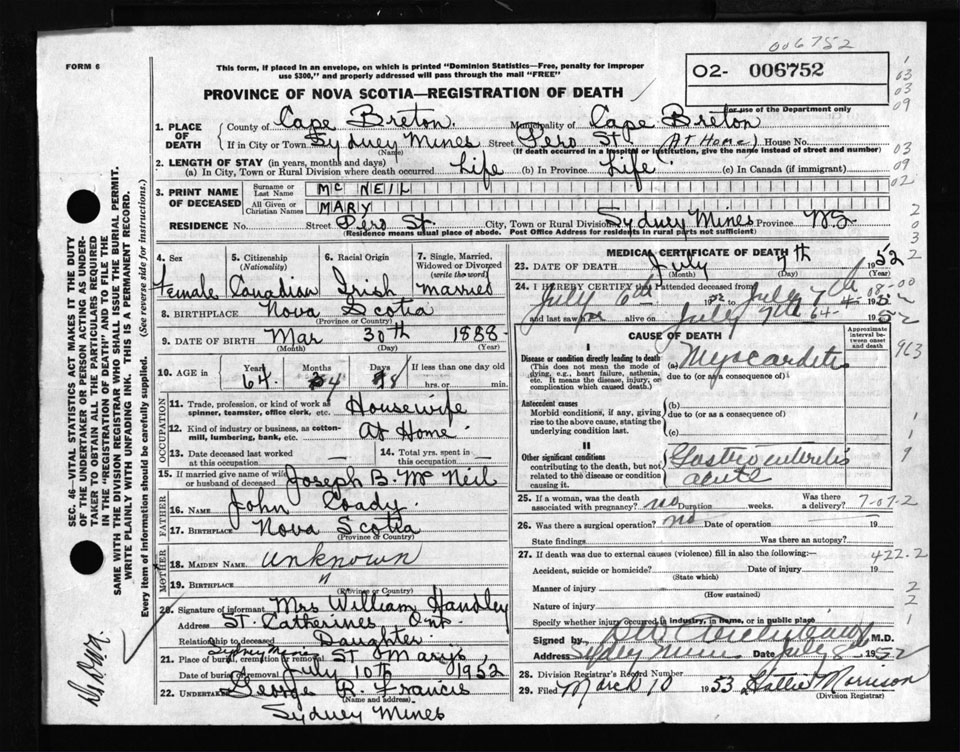 006752
FORM 6
This form, if placed in an envelope, on which is printed "Dominion Statistics—Free, penalty for improper
use $300," and properly addressed will pass through the mail "FREE"
02- 006752
For use of the Department only
PROVINCE OF NOVA SCOTIA—REGISTRATION OF DEATH
1. PLACE OF DEATH
County of Cape Breton. Municipality of Cape Breton
If in City or Town Sydney Mines Street Pero St. (At Home) House No.
(Name) (If death occurred in a hospital or institution, give the name instead of street and number)
2. LENGTH OF STAY (in years, months and days)
(a) In City, Town or Rural Division where death occurred Life (b) In Province Life (c) In Canada (if immigrant)
3. PRINT NAME OF DECEASED
Surname or Last Name MC NEIL
All Given or Christian Names MARY
RESIDENCE No. Street Pero St. City, Town or Rural Division Sydney Mines Province N.S
(Residence means usual place of abode. Post Office Address for residents in rural parts not sufficient)
4. Sex Female
5. Citizenship (Nationality) Canadian
6. Racial Origin Irish
7. Single, Married, Widowed or Divorced (write the word) Married
8. BIRTHPLACE Nova Scotia
(Province or Country)
9. DATE OF BIRTH Mar 30th 1888
(Month) (Day) (Year)
10. AGE in Years Months Days If less than one day old
64 4 8 hrs. or min.
OCCUPATION
11. Trade, profession, or kind of work as spinner, teamster, office clerk, etc. Housewife
12. Kind of industry or business, as cotton-mill, lumbering, bank, etc. At Home
13. Date deceased last worked at this occupation —
14. Total yrs. spent in this occupation —
15. If married give name of wife or husband of deceased Joseph B. Mc Neil
FATHER
16. NAME John Coady
17. BIRTHPLACE Nova Scotia
(Province or Country)
MOTHER
18. MAIDEN NAME unknown
19. BIRTHPLACE "
(Province or Country)
20. Signature of informant Mrs William Handley
Address St. Catherines Ont.
Relationship to deceased Daughter
21. Place of burial, cremation or removal Sydney Mines St Marys,
Date of burial or removal July 10th 1952
22. UNDERTAKER George R. Francis
(Name and address)
Sydney Mines
MEDICAL CERTIFICATE OF DEATH
23. DATE OF DEATH July 7th 1952
(Month) (Day)
24. I HEREBY CERTIFY that I attended deceased from
July 6th 1952 to July 7th 1952
and last saw her alive on July 7th 1952
08-00
64
CAUSE OF DEATH
Approximate interval between onset and death
I
Disease or condition directly leading to death
(This does not mean the mode of dying, e.g., heart failure, asthenia, etc. It means the disease, injury, or complication which caused death.)
(a) Myocarditis
due to (or as a consequence of):
963
Antecedent causes
Morbid conditions, if any, giving rise to the above cause, stating the underlying condition last.
(b)
due to (or as a consequence of)
(c)
II
Other significant conditions
contributing to the death, but not related to the disease or condition causing it.
Gastroenteritis
acute
25. If a woman, was the death associated with pregnancy? no Duration weeks. Was there a delivery?
7-07.2
26. Was there a surgical operation? no Date of operation 19
State findings Was there an autopsy?
27. If death was due to external causes (violence) fill in also the following:—
422.2
Accident, suicide or homicide? Date of injury 19
(State which)
Manner of injury
(How sustained)
Nature of injury
Specify whether injury occurred in industry, in home, or in public place
Signed by M.D.
Address Sydney Mines Date July 8 1952
28. Division Registrar's Record Number
29. Filed March 10 1953 Hattie Morrison
(Division Registrar)
SEC. 46—VITAL STATISTICS ACT MAKES IT THE DUTY
OF THE UNDERTAKER OR PERSON ACTING AS UNDER-
TAKER TO OBTAIN ALL THE PARTICULARS REQUIRED
IN THE "REGISTRATION OF DEATH" AND TO FILE THE
SAME WITH THE DIVISION REGISTRAR WHO SHALL ISSUE THE BURIAL PERMIT.
WRITE PLAINLY WITH UNFADING INK. THIS IS A PERMANENT RECORD.
Every item of information should be carefully supplied. (See reverse side for instructions.)
1
03
03
09
03
09
02
2
0
3
2
2
1
1
9
2
2
1